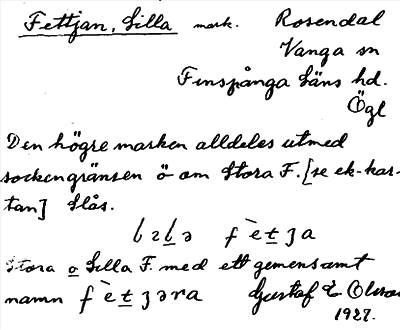 Fettjan, Lilla mark. Rosendal
Vånga sn
Finspånga läns hd.
Ögl
Den högre marken alldeles utmed
sockengränsen ö om Stora F. [se ek-kar-
tan] Slås.
f è t ʒ a
Stora o Lilla F. med ett gemensamt
namn f è t ʒ ə r a Gustaf E Olsson
1927.